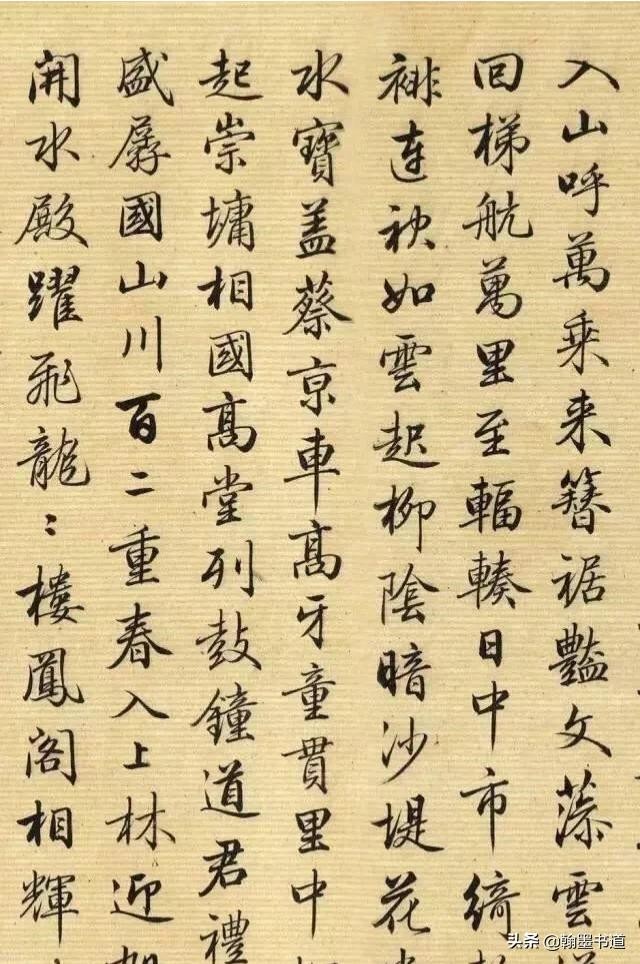 入山呼萬乘来簪裾豔文藻雲
回梯航萬里至輻輳日中市綺
連袂如雲起柳陰暗沙堤花
水寶盖蔡京車高牙童貫里中
起崇墉相國高堂列鼓鐘道君禮
盛國山川百二重春入上林迎
開水殿躍飛龍〻樓鳳閣相輝
头条 @翰墨书道